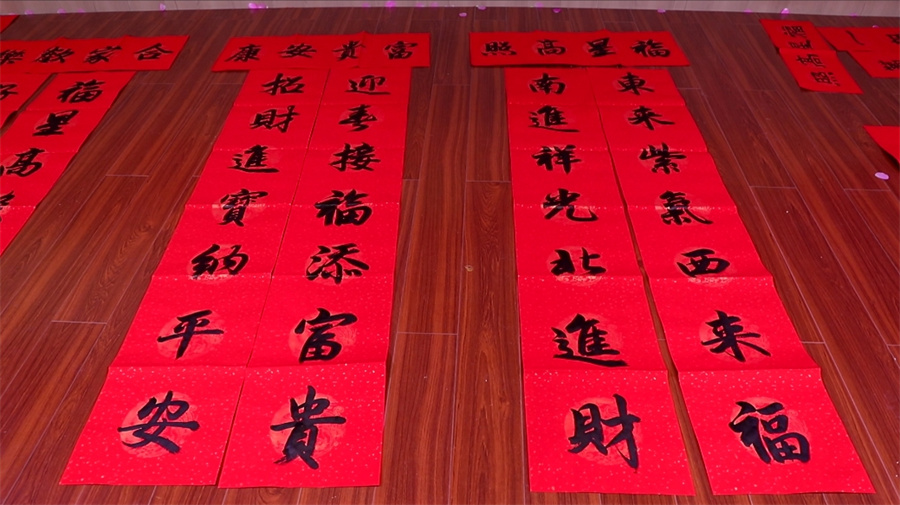 福星高照
東來紫氣西來福
南進祥光北進財
富貴安康
迎春接福添富貴
招財進寶納平安
合家歡樂
福星高